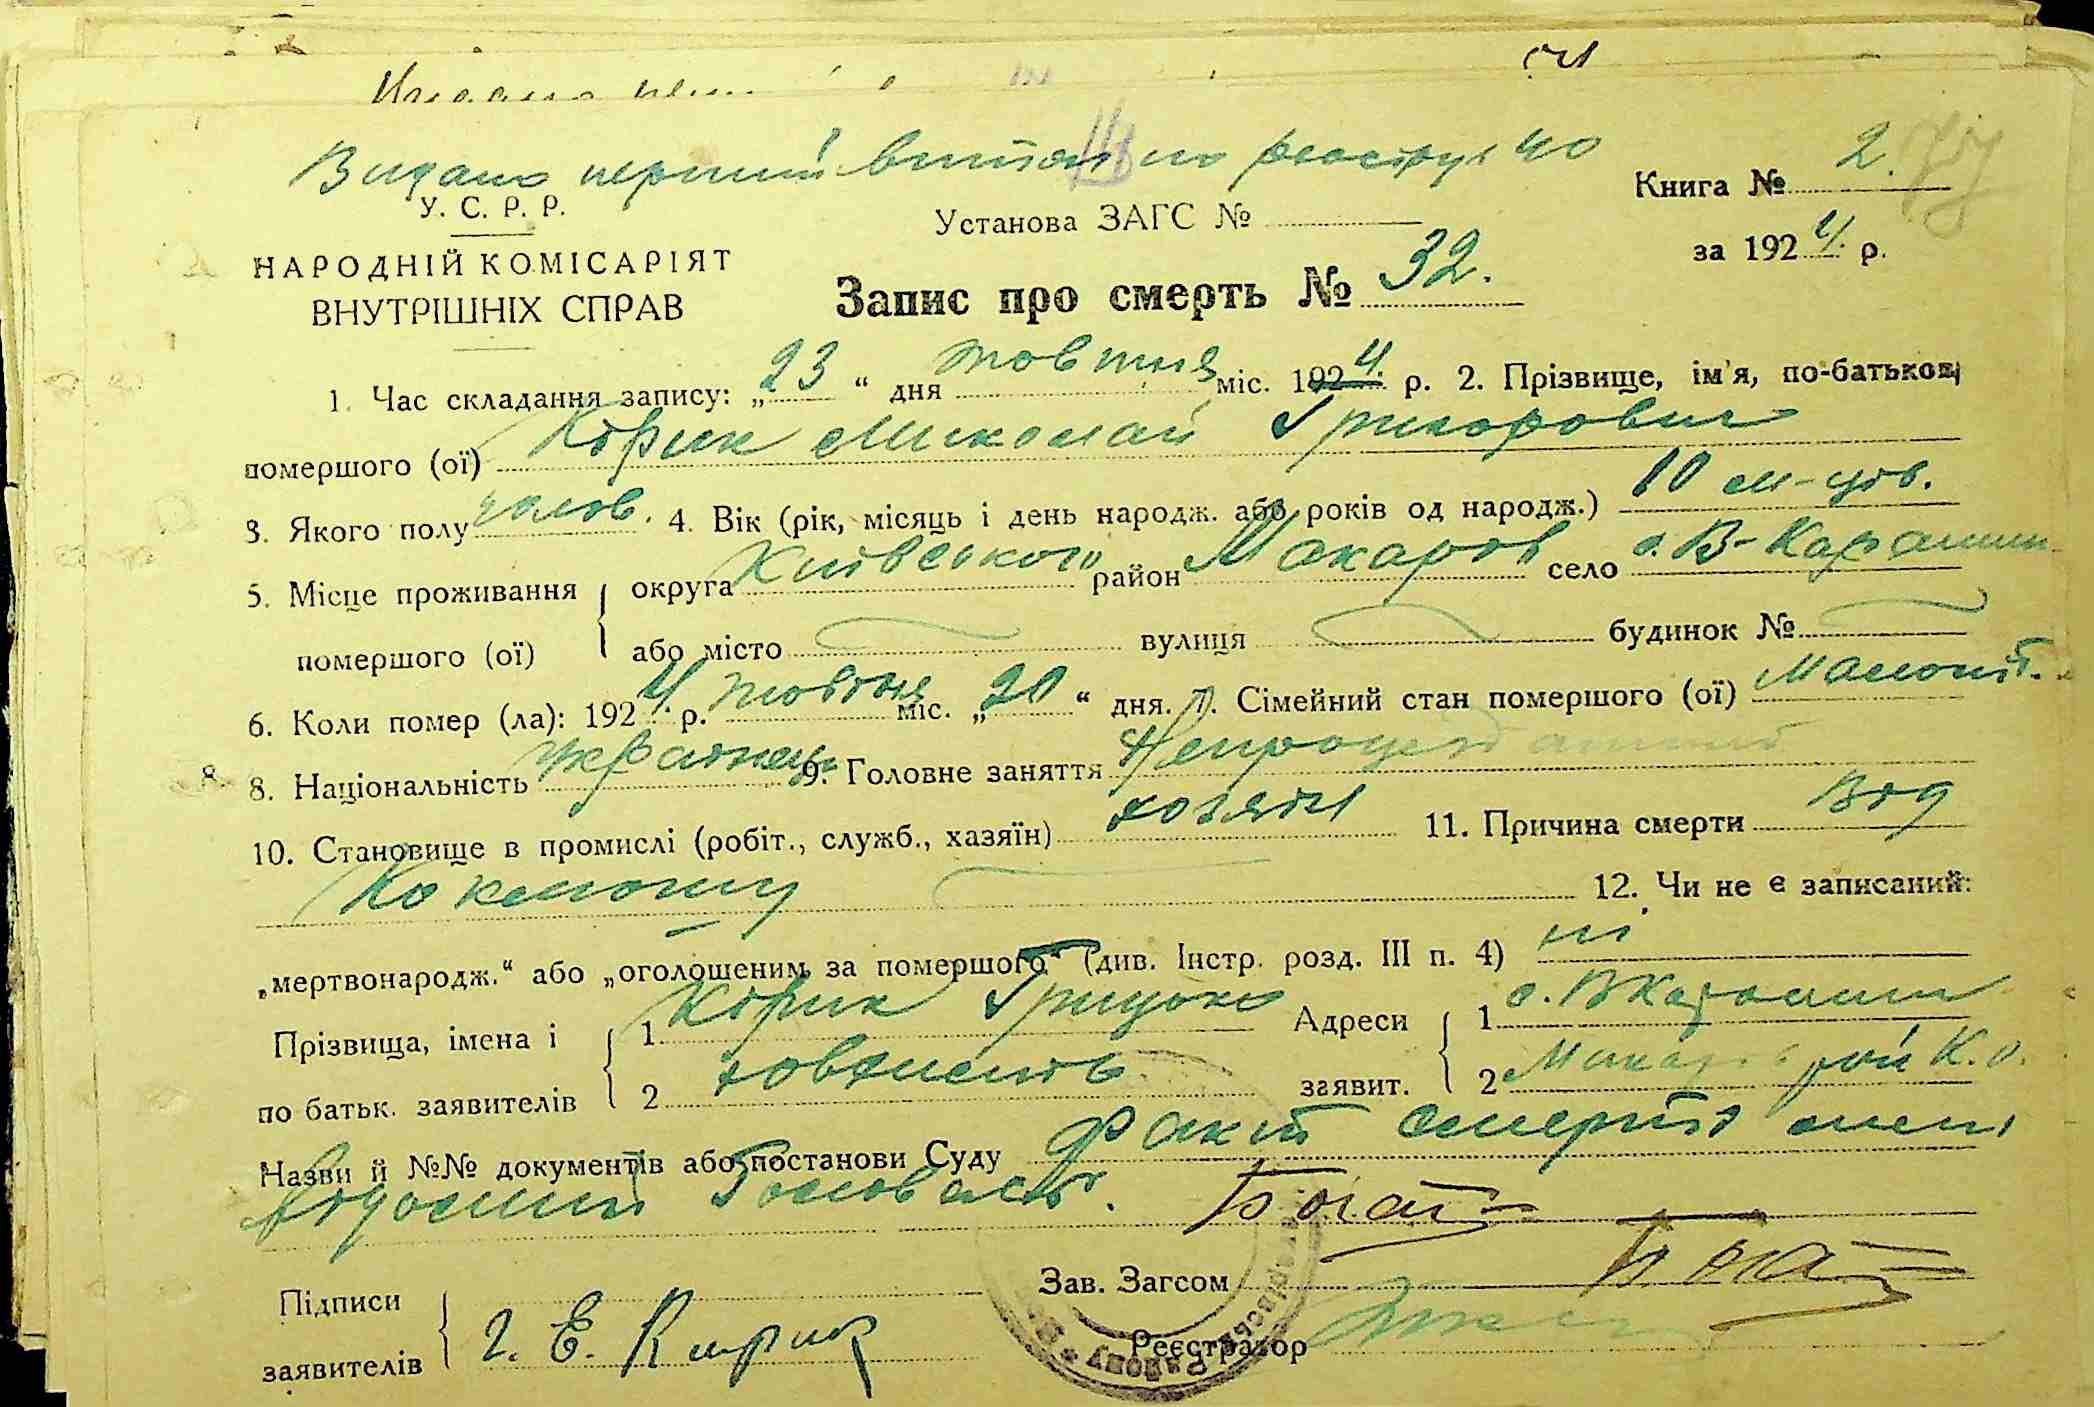 Видано перший витяг по реєстру 40
У. С. Р. Р.
НАРОДНІЙ КОМІСАРІЯТ
ВНУТРІШНІХ СПРАВ
Установа ЗАГС №
Книга № 2.
за 1924 р.
Запис про смерть № 32.
1. Час складання запису: „23“ дня жовтня міс. 1924. р. 2. Прізвище, ім'я, по-батькові
помершого (ої) Кірик Миколай Григорович
3. Якого полу чолов. 4. Вік (рік, місяць і день народж. або років од народж.) 10 м-ців.
5. Місце проживання округа Київського район Макарів село с. В-Карашин
помершого (ої) або місто вулиця будинок №
6. Коли помер (ла): 1924 р. жовтня міс. „20“ дня. 7. Сімейний стан помершого (ої) Малоліт.
8. Національність українець 9. Головне заняття
10. Становище в промислі (робіт., служб., хазяїн) хозяїн 11. Причина смерти Від
Коклюшу 12. Чи не є записаний:
„мертвонародж.“ або „оголошеним за помершого“ (див. Інстр. розд. III п. 4) ні
Прізвища, імена і 1 Кірик Грицько Адреси 1 с. В Карашин
по батьк. заявителів 2 заявит. 2 Макарів рай К. о.
Назви й №№ документів або постанови Суду Факт смерті мені
відомий
Зав. Загсом
Підписи
заявителів Г. Е. Кирик
Реєстратор